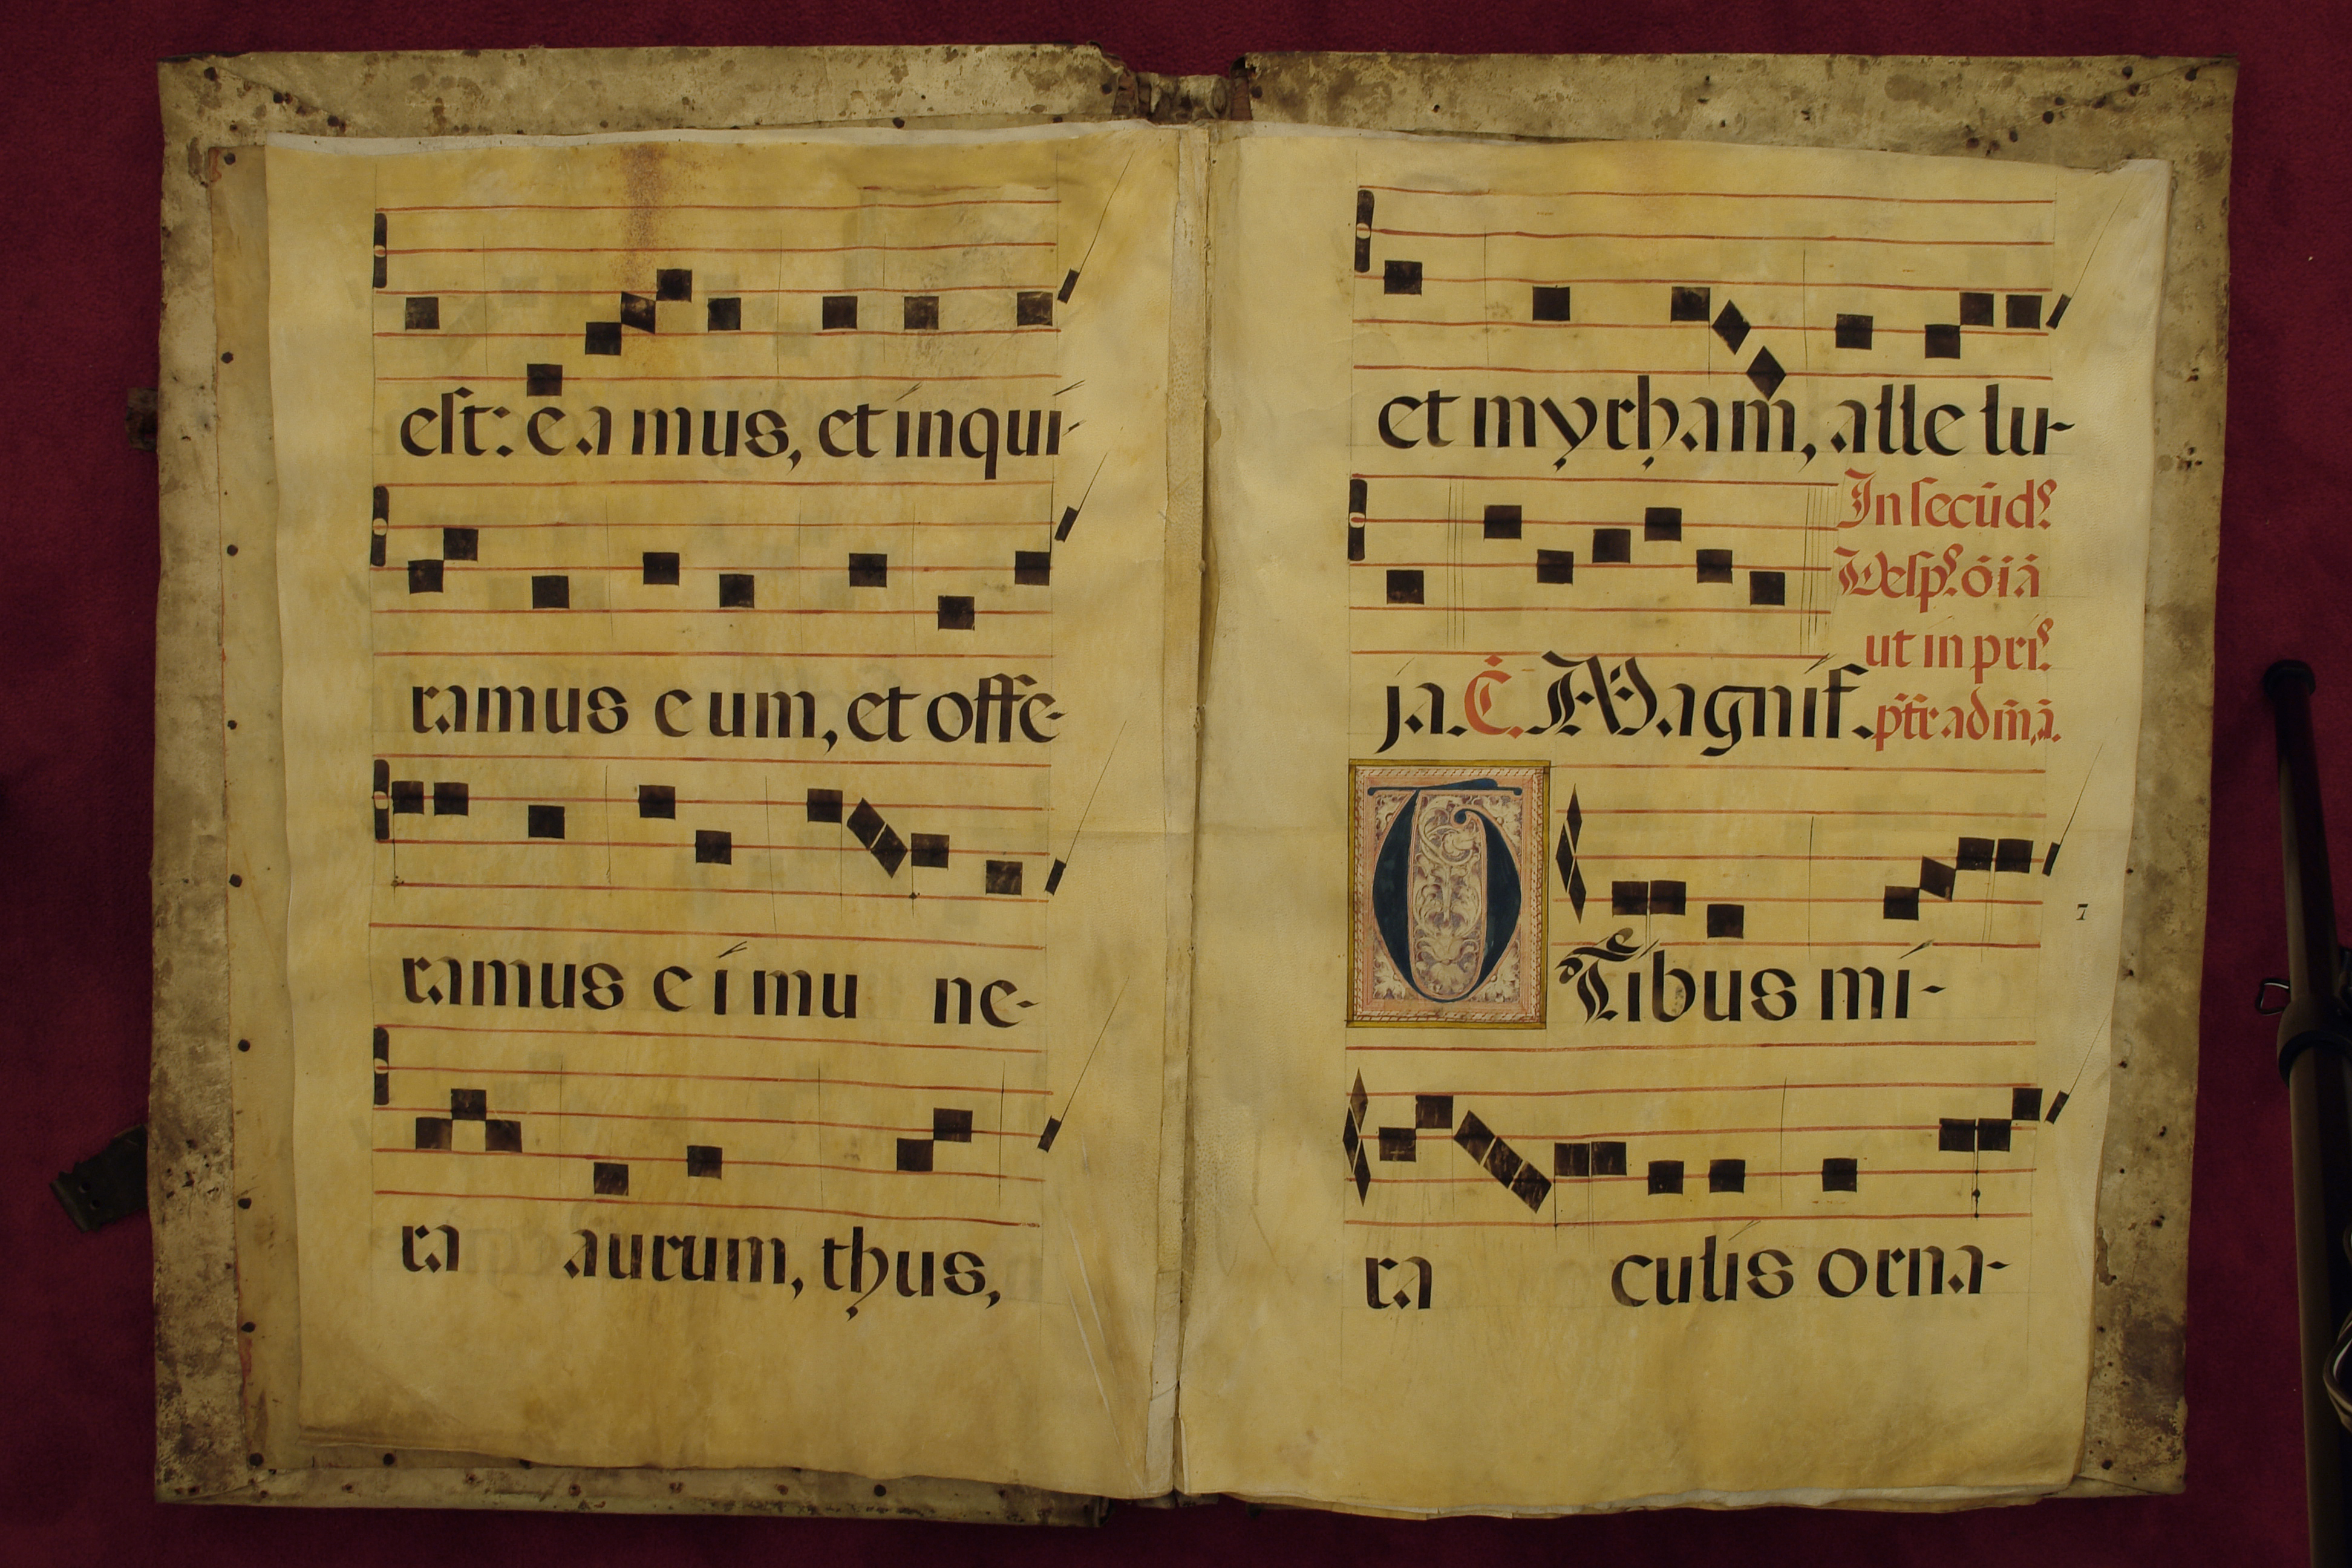 est: e a mus, et inqui-
ramus e um, et offe-
ramus e i mu ne-
ra aurum, thus,
et myrham, alle lu-
In secūd?
Vesp? oīa
ja. C. Magnif.
ut in pri?
ptr ad m̄a.
T Tibus mi-
7
ra culis orna-